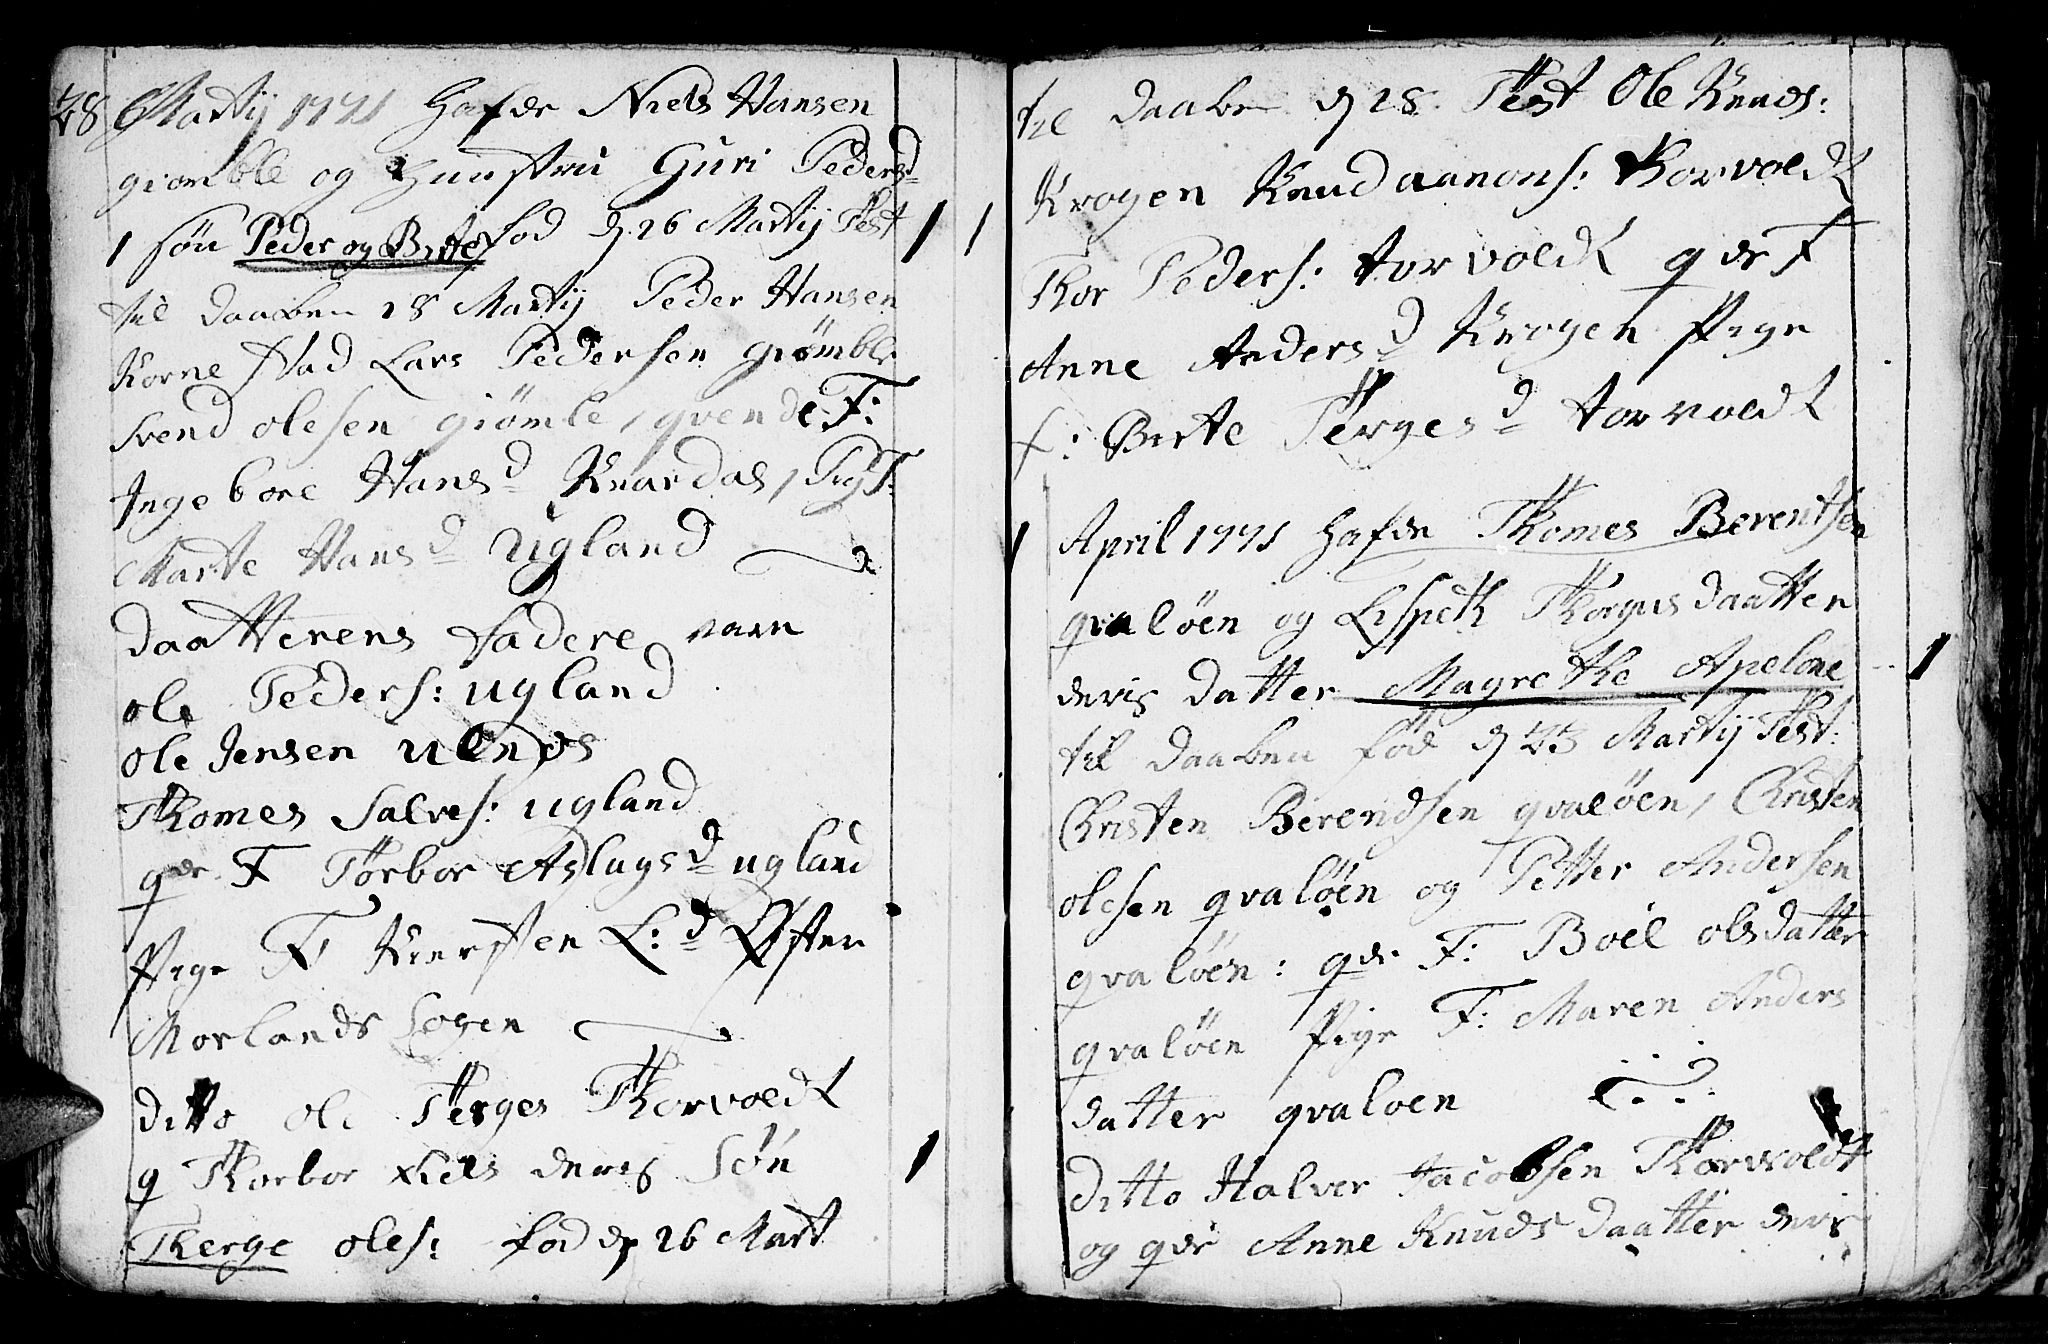 28 Martij 1771 Hafde Niels Hansen
giømble og Hunstrui Guri Pedersd
1 søn Peder og Birte fød d 26 Martij Test 1 1
til daaben 28 Martij Peder Hansen
Korne stad Lars Pedersen giømble
Svend olesen giømle, qvende F:
Ingebore Hansd Knardal, Pig F:
Marte Hansd ugland
daatterens fadere vare
ole Peders: ugland
ole Jensen ulenes
Thomes Salves: ugland
qde F Torbor Aslagsd ugland
Pige F Kiersten L: d Østen
Morlands Sogen
ditto ole Terges Thorvoldt
q Thorbor Niels deris Søn 1
Therge oles: fød d 26 Mart
til daaben d 28 Test Ole Knuds:
Krogen Knud aanons: thorvoldt
Thor Peders: torvoldt q de F
Anne Andersd Krogen Pige
f: Birte Tergesd torvoldt
1 April 1771 Hafde Thomes Berentsen
qvaløen og Lispeth Thorgusdaatter
deris datter Magrethe Apelone 1
til daaben fød d 23 Martij Test:
Christen Berendsen qvaløen, Christen
olesen qvaløen og Petter Andersen
qvaløen: qde F: Boel olsdatter
qvaløen Pige F: Maren Anders
datter qvaloen
ditto Halver Jacobsen Thorvoldt
og qde Anne Knudsdaatter deris